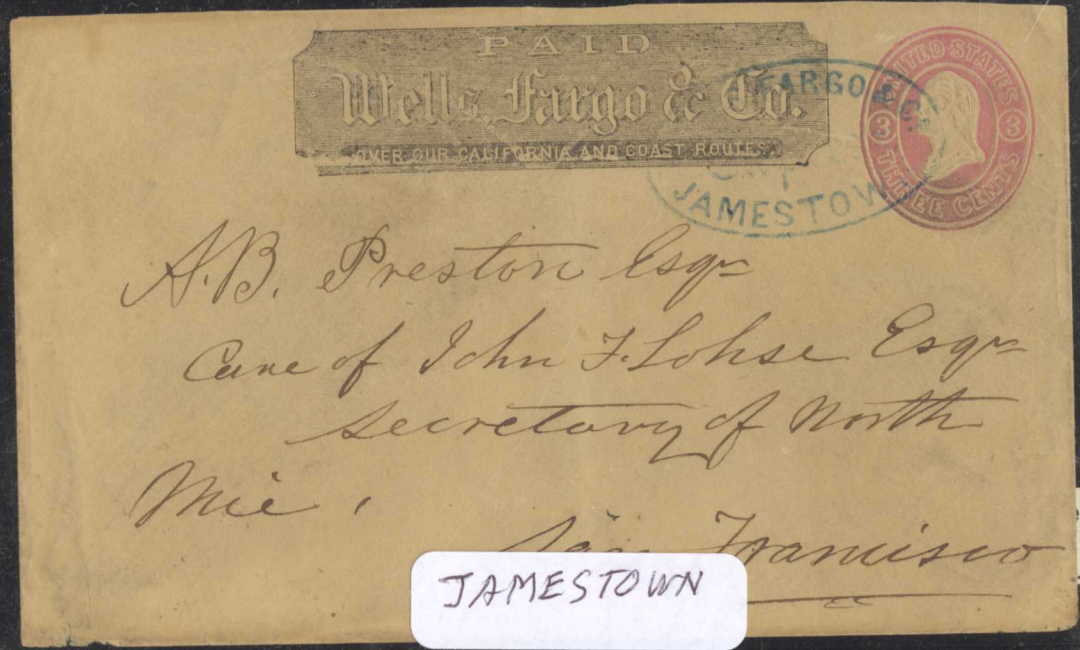 PAID
Wells, Fargo & Co.
OVER OUR CALIFORNIA AND COAST ROUTES.
FARGO & Co.
JAMESTOW
UNITED STATES
3 3
THREE CENTS
A. B. Preston Esqr
Care of John F. Lohse Esqr
Secretary of North
San Francisco
JAMESTOWN